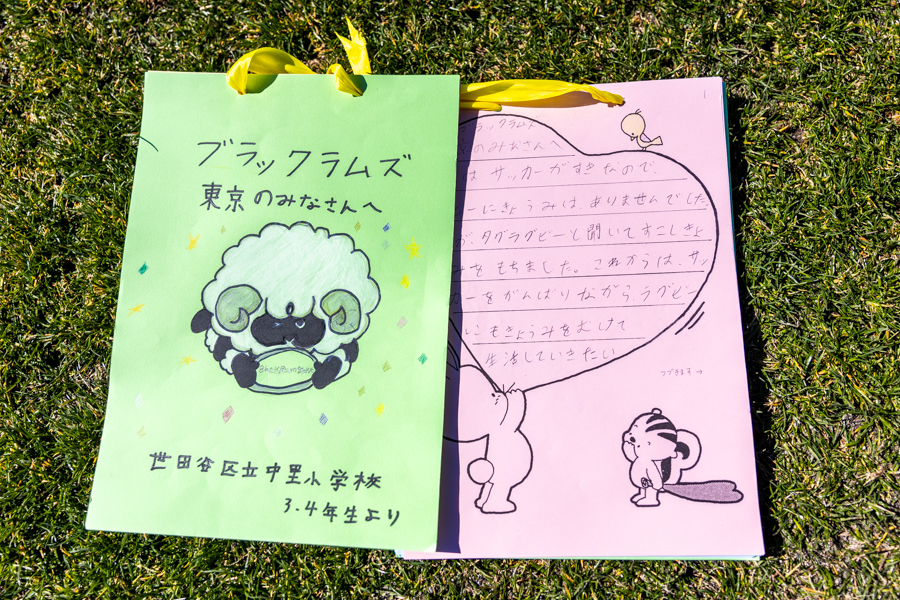 ブラックラムズ
東京のみなさんへ
世田谷区立中里小学校
3.4年生より
1
ラックラムズ
のみなさんへ
は サッカーがすきなので、
ーにきょうみは、ありませんでした
が、タグラグビーと聞いてすこしきょ
みをもちました。これからは、サッ
カーをがんばりながらラグビー
にもきょうみをむけて
生活していきたい
つづきます→